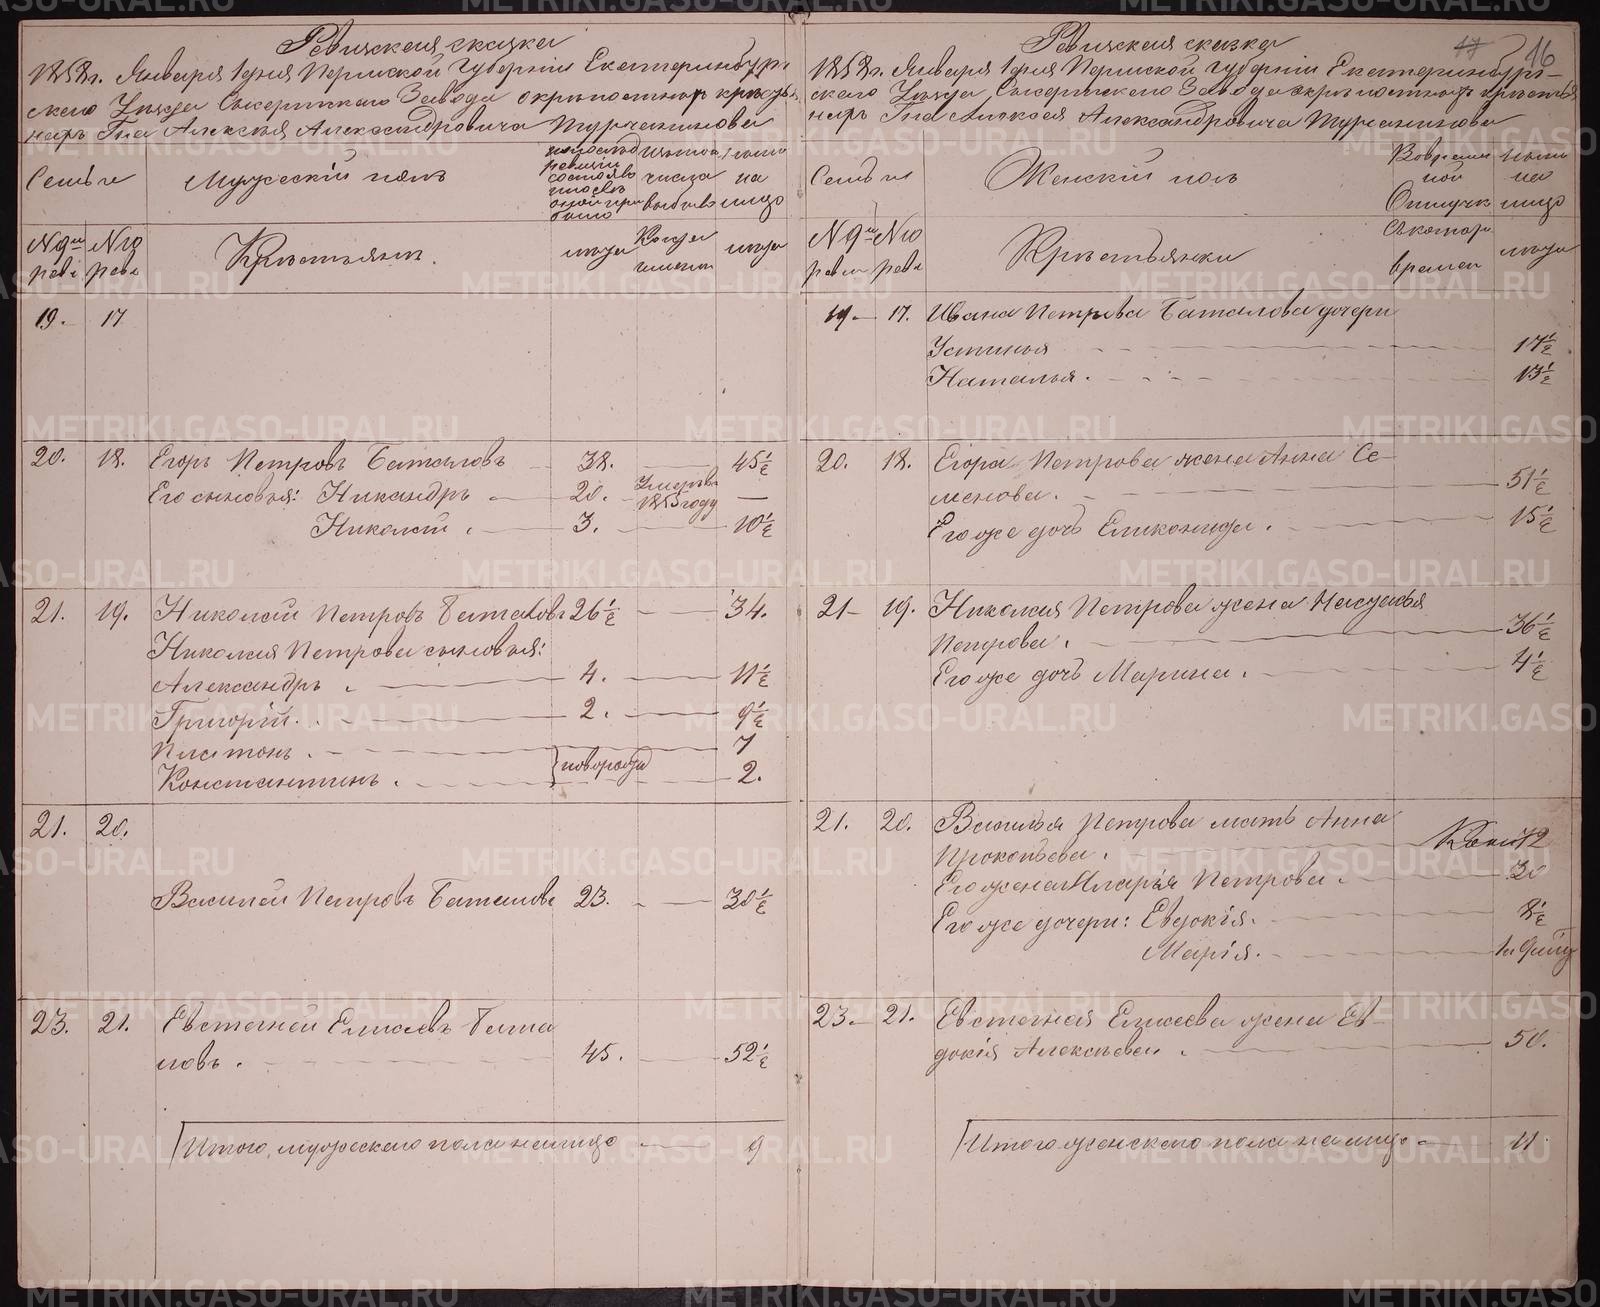 Ревижская сказка
1858г. Января 1 дня Пермской Губерніи Екатеринбург-
скаго Уѣзда Сысертскаго Завода о крѣпостныхъ крестья-
нахъ Гна Алексѣя Александровича Турчанинова
Семьи
Мужескій полъ
числа
на
лицо
№ 9й
реви
№ 10
реви
Крестьянъ.
лѣта
Когда
именно
лѣта
19. 17
20. 18. Егоръ Петровъ Баталовъ 38. 45½
Его сыновья: Никандръ 20. Умеръ въ 1855 году
Николай. 3. 10½
21. 19. Николай Петровъ Баталовъ 26½ 34.
Николая Петрова сыновья:
Александръ. 4. 11½
Григорій. 2. 9½
Платонъ. 7
новорожд
Константинъ. 2.
21. 20.
Василей Петровъ Баталовъ 23. 30½
23. 21. Евстегней Елисеевъ Бата
ловъ. 45. 52½
Итого мужескаго пола налицо 9
17 16
Ревижская сказка
1858г. Января 1 дня Пермской Губерніи Екатеринбург-
скаго Уѣзда Сысертскаго Завода о крѣпостныхъ крестья
нахъ Гна Алексея Александровича Турчанинова
Семьи
Женскій полъ
Во временной
Отлучкѣ
ныне
на
лицо
№ 9й
ревіи
№ 10
реви
Крестьянки
Съ котор
времен
лѣта
19. 17. Ивана Петрова Баталова дочери
Устинья 17½
Наталья. 13½
20. 18. Егора Петрова жена Анна Се-
менова. 51½
Его же дочь Еликонида. 15½
21 19. Николая Петрова жена Настасья
Петрова. 36½
Его же дочь Марина. 4½
21. 20. Василья Петрова мать Анна
Прокопьева. 72
Его жена Иларья Петрова. 30
Его же дочери: Евдокія. 8½
Марія.
23. 21. Евстегнея Елисеева жена Ев-
докія Алексѣева. 50.
Итого женскаго пола на лицо 11.
METRIKI.GASO-URAL.RU